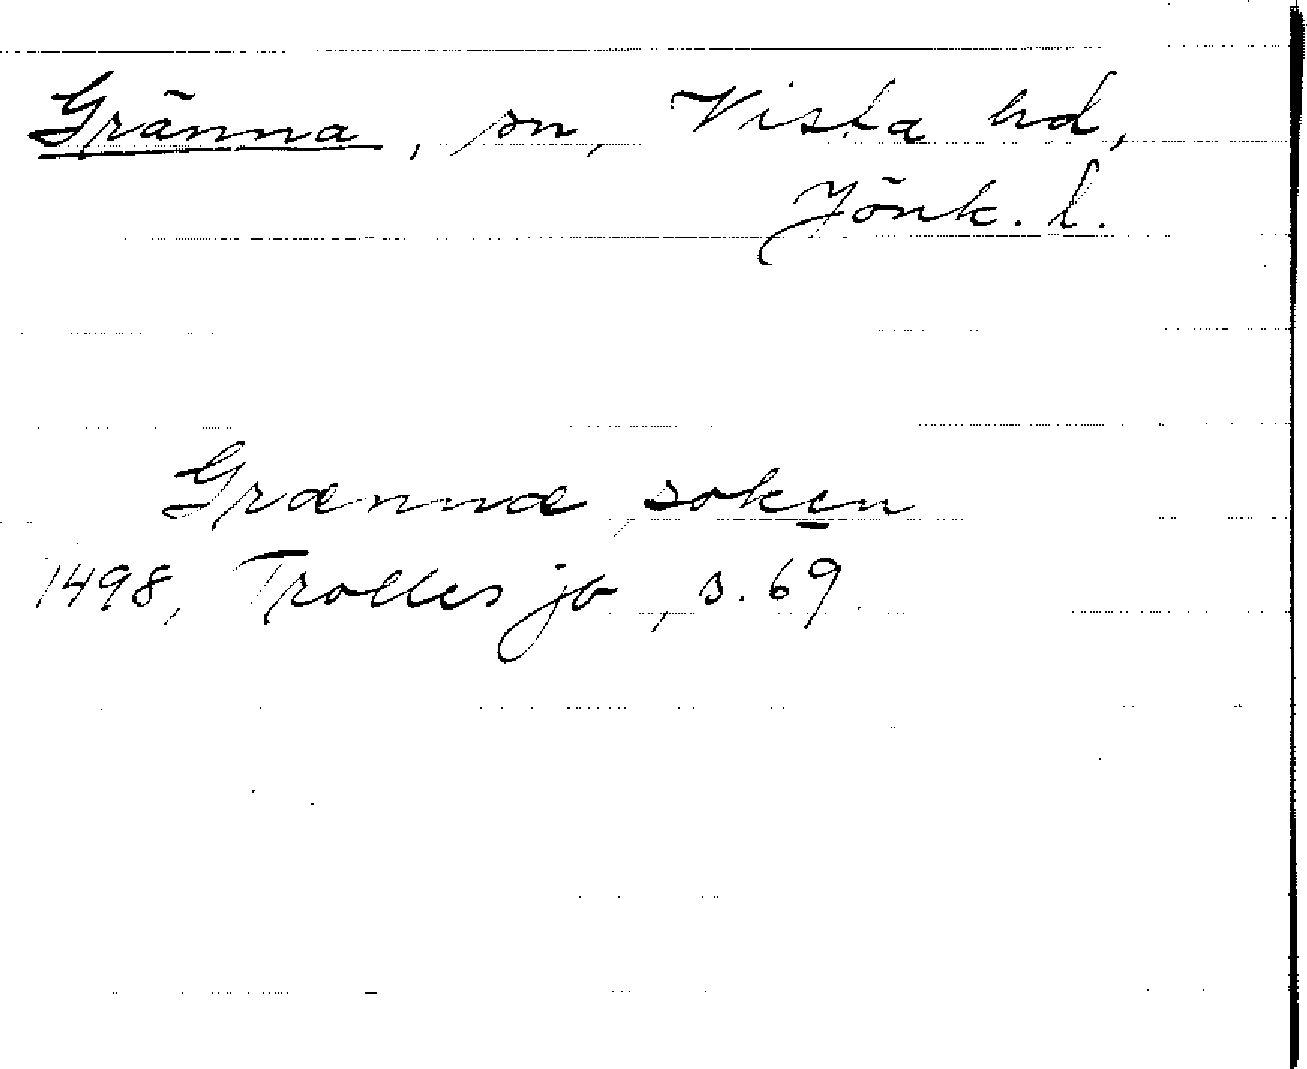 Gränna, sn, Vista hd,
Jönk. l.
Grænnæ soken
1498, Trolles jb, s. 69.